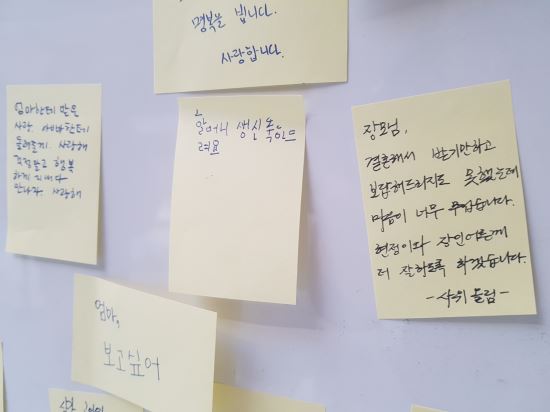 명복을 빕니다.
사랑합니다.
엄마한테 받은
사랑. 아빠한테
돌려줄게. 사랑해
걱정말고 행복
하게 지내다
만나자 사랑해
할머니 생신축하드
려요
장모님,
결혼해서 받기만하고
보답해드리지도 못했는데
마음이 너무 무겁습니다.
현정이와 장인어른께
더 잘하도록 하겠습니다.
-사위 올림-
엄마,
보고싶어